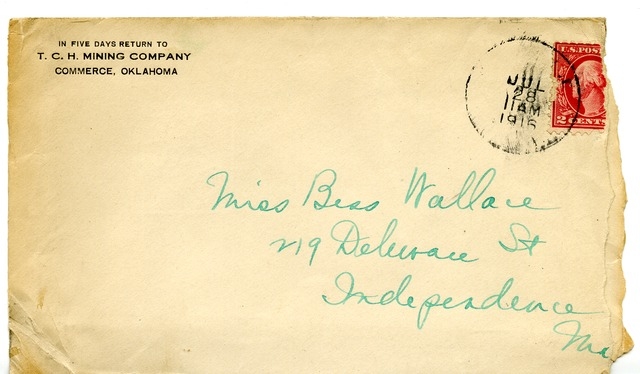 IN FIVE DAYS RETURN TO
T. C. H. MINING COMPANY
COMMERCE, OKLAHOMA
U.S. POST
JUL
28
11 AM
1916
2 CENTS
Miss Bess Wallace
219 Delaware St
Independence
Mo